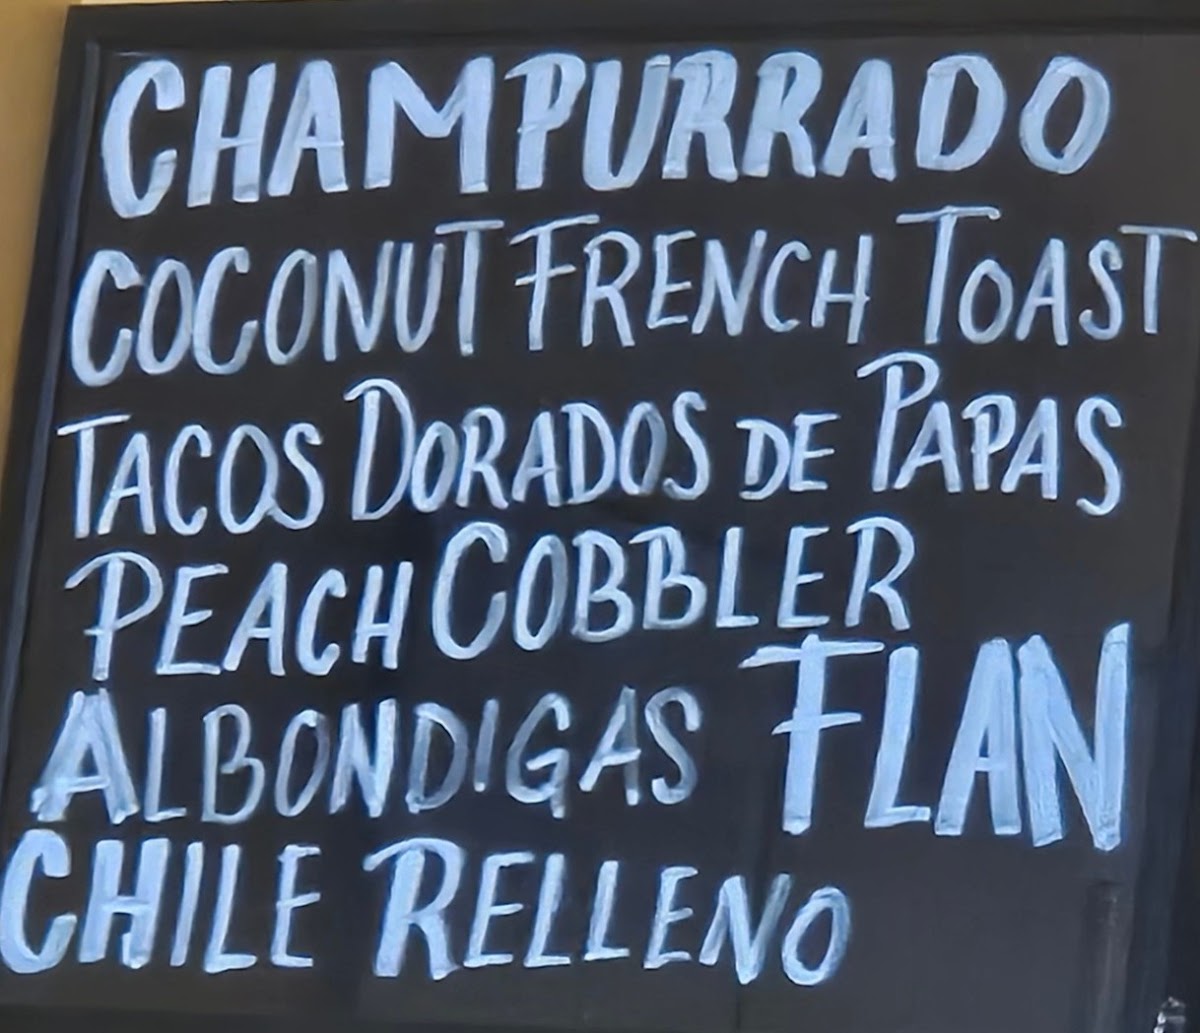 CHAMPURRADO
COCONUT FRENCH TOAST
TACOS DORADOS DE PAPAS
PEACH COBBLER
ALBONDIGAS FLAN
CHILE RELLENO